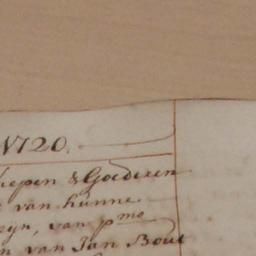 1720.
hepen & Goederen
van hunne
eyn, van pmo
n van Jan Bout